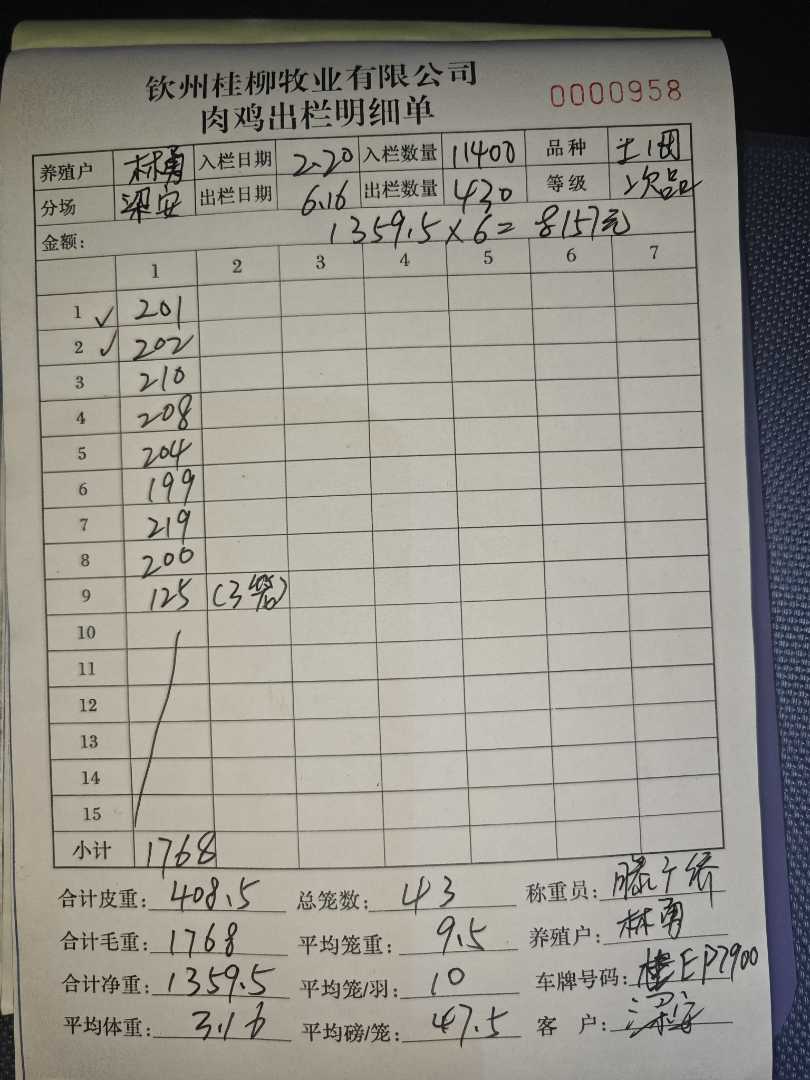 钦州桂柳牧业有限公司
肉鸡出栏明细单 0000958
养殖户 林勇 入栏日期 2.20 入栏数量 11400 品种 土1
分场 梁安 出栏日期 6.16 出栏数量 430 等级 次品
金额: 1359.5×6=8157元
1 2 3 4 5 6 7
1 ✓ 201
2 ✓ 202
3 210
4 208
5 204
6 199
7 219
8 200
9 125 (3笼)
10
11
12
13
14
15
小计 1768
合计皮重: 408.5 总笼数: 43 称重员:
合计毛重: 1768 平均笼重: 9.5 养殖户: 林勇
合计净重: 1359.5 平均笼/羽: 10 车牌号码: 桂EP7900
平均体重: 3.16 平均磅/笼: 47.5 客户: